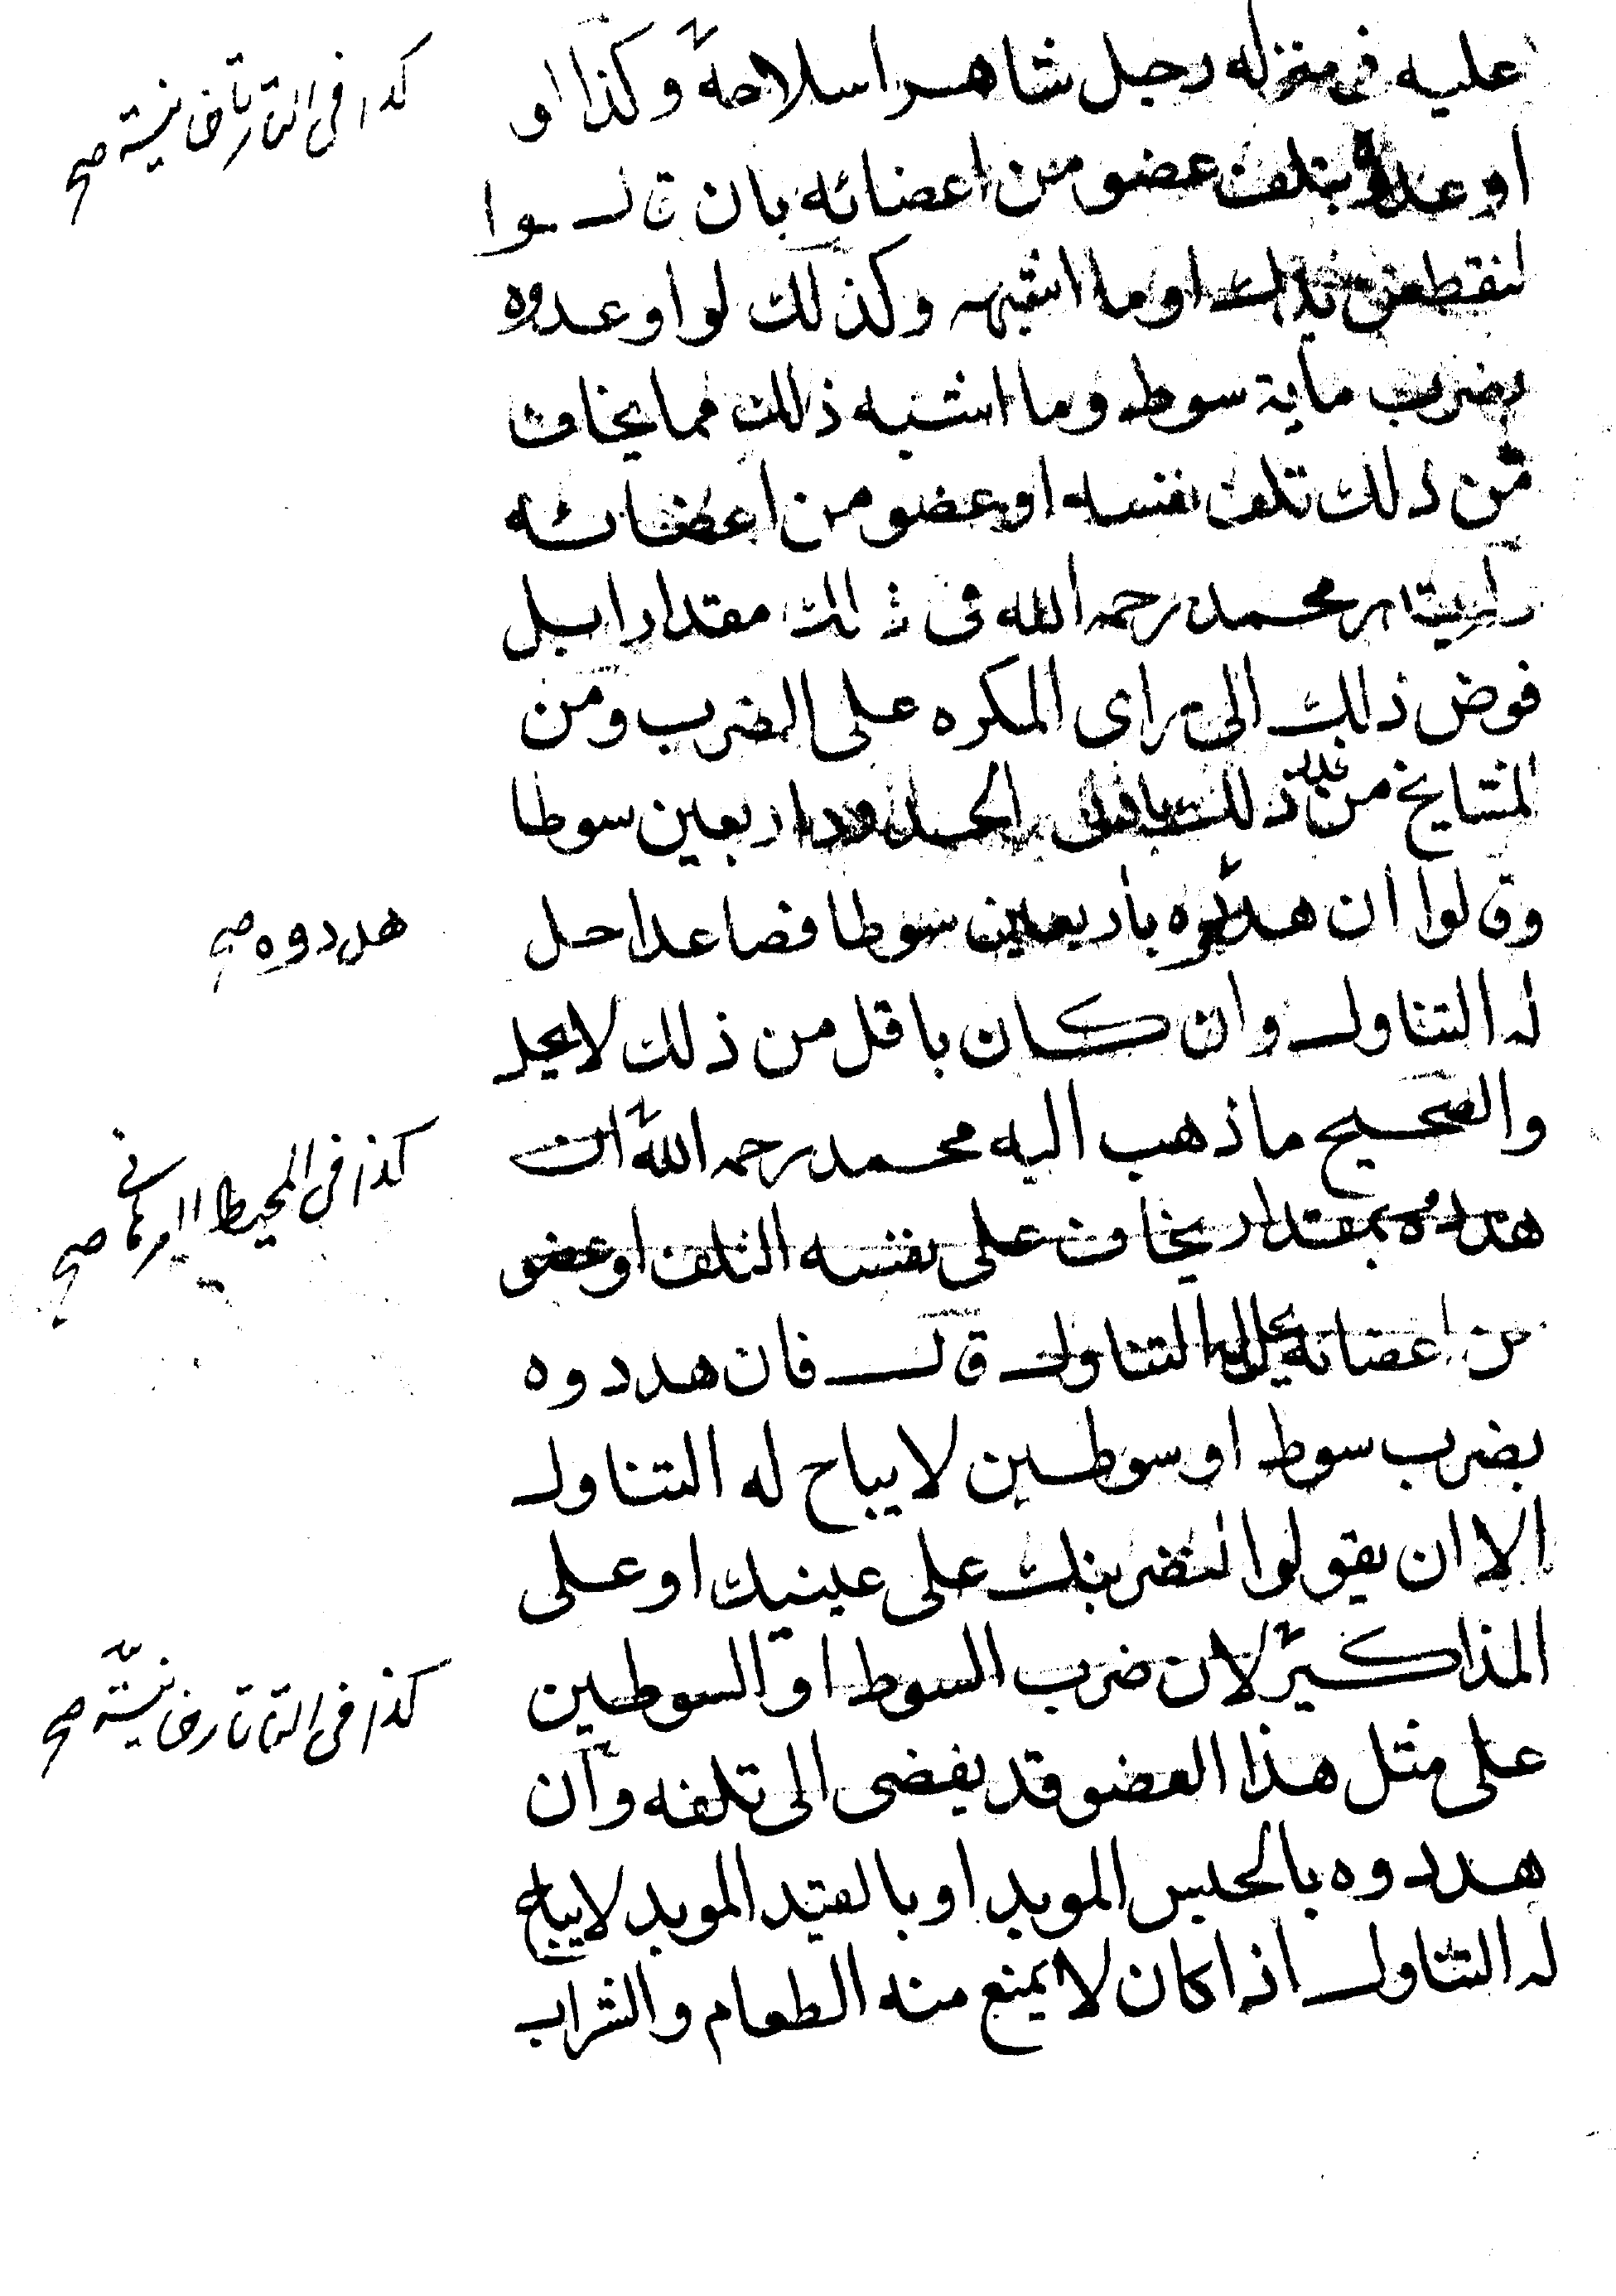 عليه فى منزله رجل شاهرا سلاحه وكذا او
اوعدوه بتلف عضو من اعضائه بان قالوا
لنقطعن يدك او ما اشبهه وكذلك لو اوعدوه
بضرب ماية سوط وما اشبه ذلك مما يخاف
من ذلك تلف نفسه او عضو من اعضائه
محمد رحمه الله فى ذلك مقدارا بل
فوض ذلك الى راى المكره على الضرب ومن
المشايخ من قدر ذلك باقل الحدود اربعين سوطا
وقالوا ان هددوه باربعين سوطا فصاعدا حل
له التناول وان كان باقل من ذلك لا يحل
والصحيح ما ذهب اليه محمد رحمه الله ان
هددوه بمقدار يخاف على نفسه التلف او عضو
من اعضائه يحل له التناول قال فان هددوه
بضرب سوط او سوطين لا يباح له التناول
الا ان يقولوا لنضربنك على عينيك او على
المذاكير لان ضرب السوط او السوطين
على مثل هذا العضو قد يفضى الى تلفه وان
هددوه بالحبس الموبد او بالقيد الموبد لا يباح
له التناول اذا كان لا يمنع منه الطعام والشراب
كذا فى التاتارخانية صح
هددوه صح
كذا فى المحيط البرهانى صح
كذا فى التاتارخانية صح